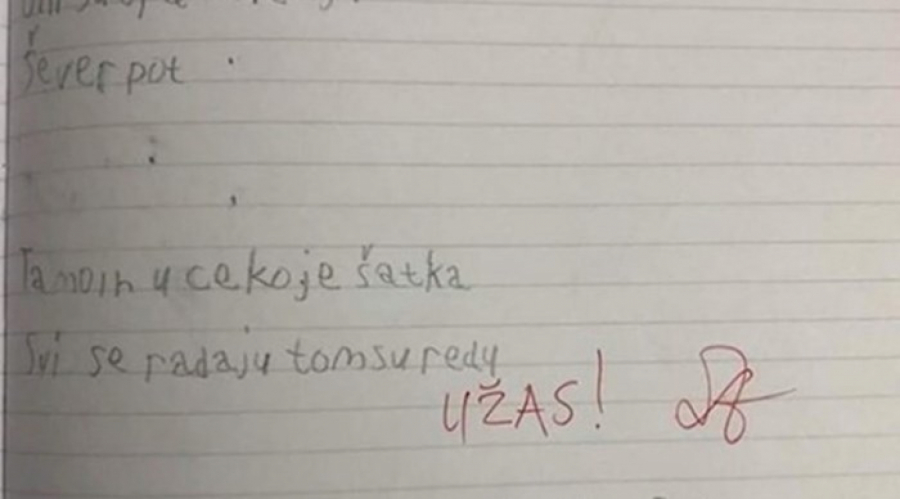 Šever pot
Tamoih u cekoje šatka
Svi se radaju tomsuredu
UŽAS!